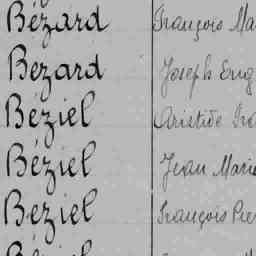 Bézard François Ma
Bézard Joseph Eug
Béziel Aristide Fra
Béziel Jean Marie
Béziel François Pier